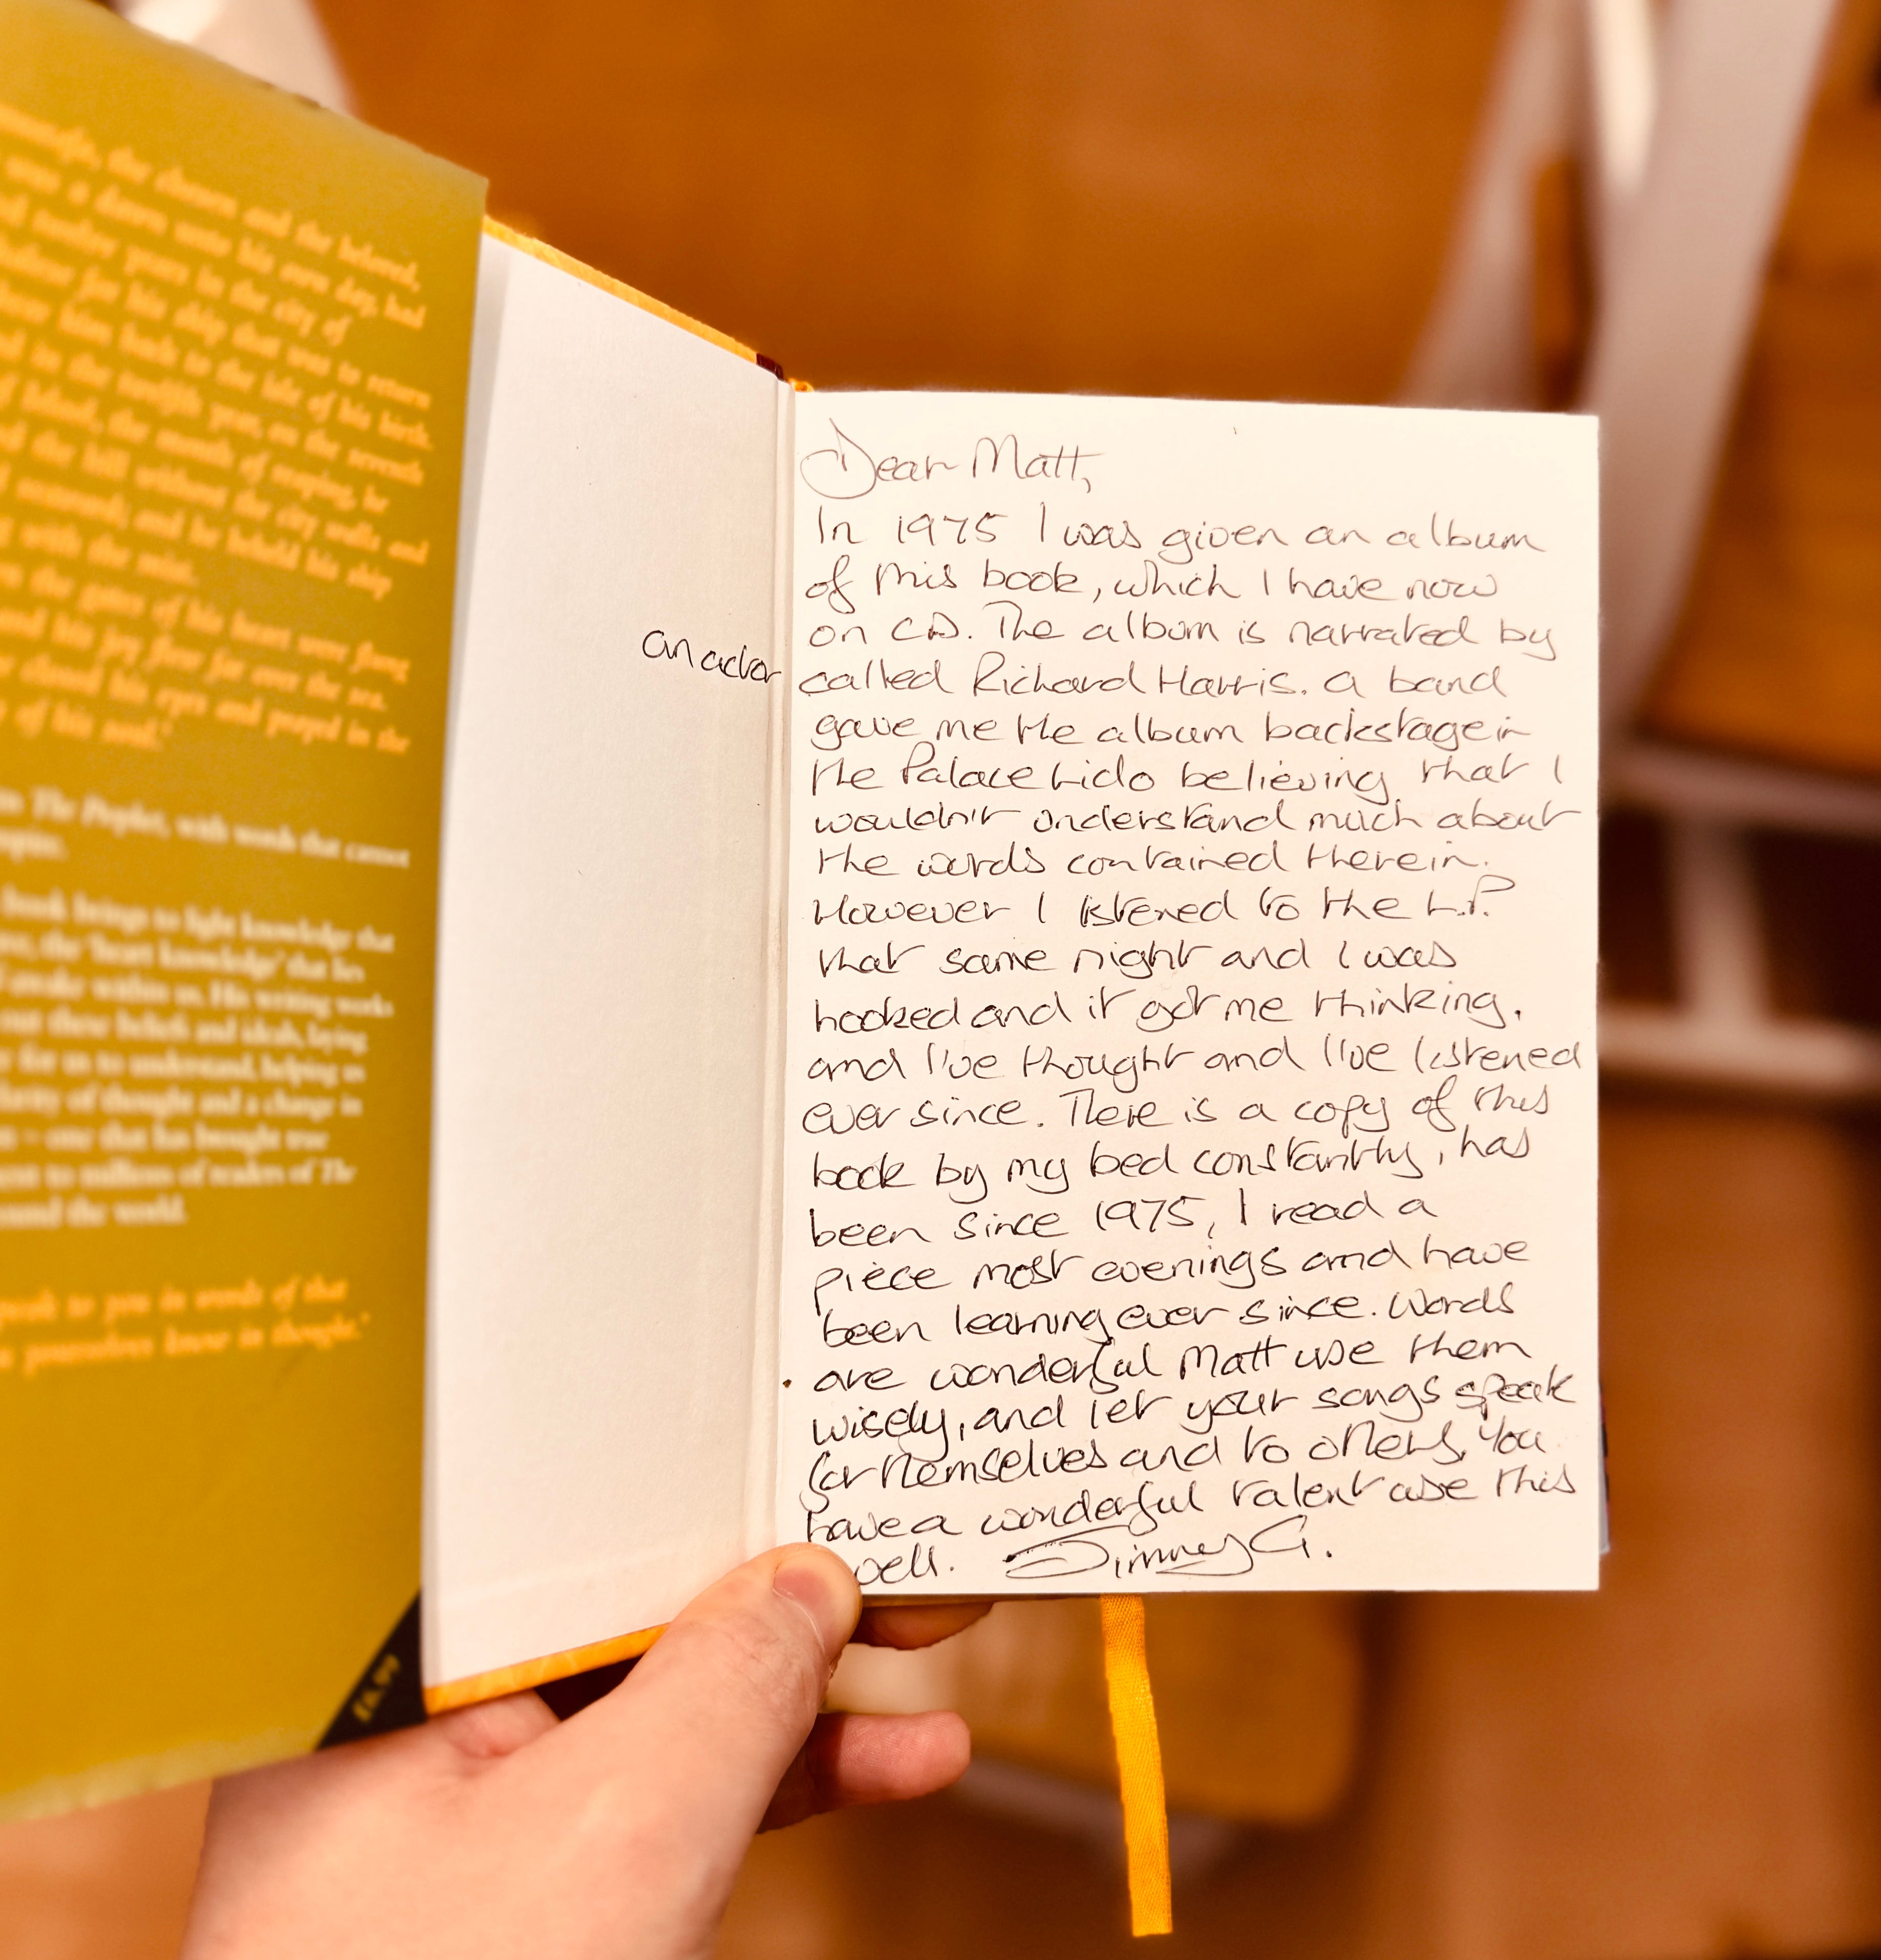 the chosen and the beloved,
was a dawn unto his own day, had
twelve years in the city of
for his ship that was to return
him back to the isle of his birth.
in the twelfth year, on the seventh
the month of reaping, he
the hill without the city walls and
and he beheld his ship
with the mist.
the gates of his heart were flung
and his joy flew far over the sea.
closed his eyes and prayed in the
of his soul.'
The Prophet, with words that cannot
book brings to light knowledge that
the 'heart knowledge' that lies
awake within us. His writing works
out these beliefs and ideals, laying
for us to understand, helping us
clarity of thought and a change in
– one that has brought true
to millions of readers of The
around the world.
speak to you in words of that
yourselves know in thought.'
£6.99
Dear Matt,
In 1975 I was given an album
of this book, which I have now
on CD. The album is narrated by
an actor called Richard Harris. a band
gave me the album backstage in
the Palace Lido believing that I
wouldn't understand much about
the words contained therein.
However I listened to the L.P.
that same night and I was
hooked and it got me thinking.
and I've thought and I've listened
ever since. There is a copy of this
book by my bed constantly, has
been since 1975, I read a
piece most evenings and have
been learning ever since. Words
are wonderful Matt use them
wisely, and let your songs speak
for themselves and to others. You
have a wonderful talent use this
well. Jimmy G.